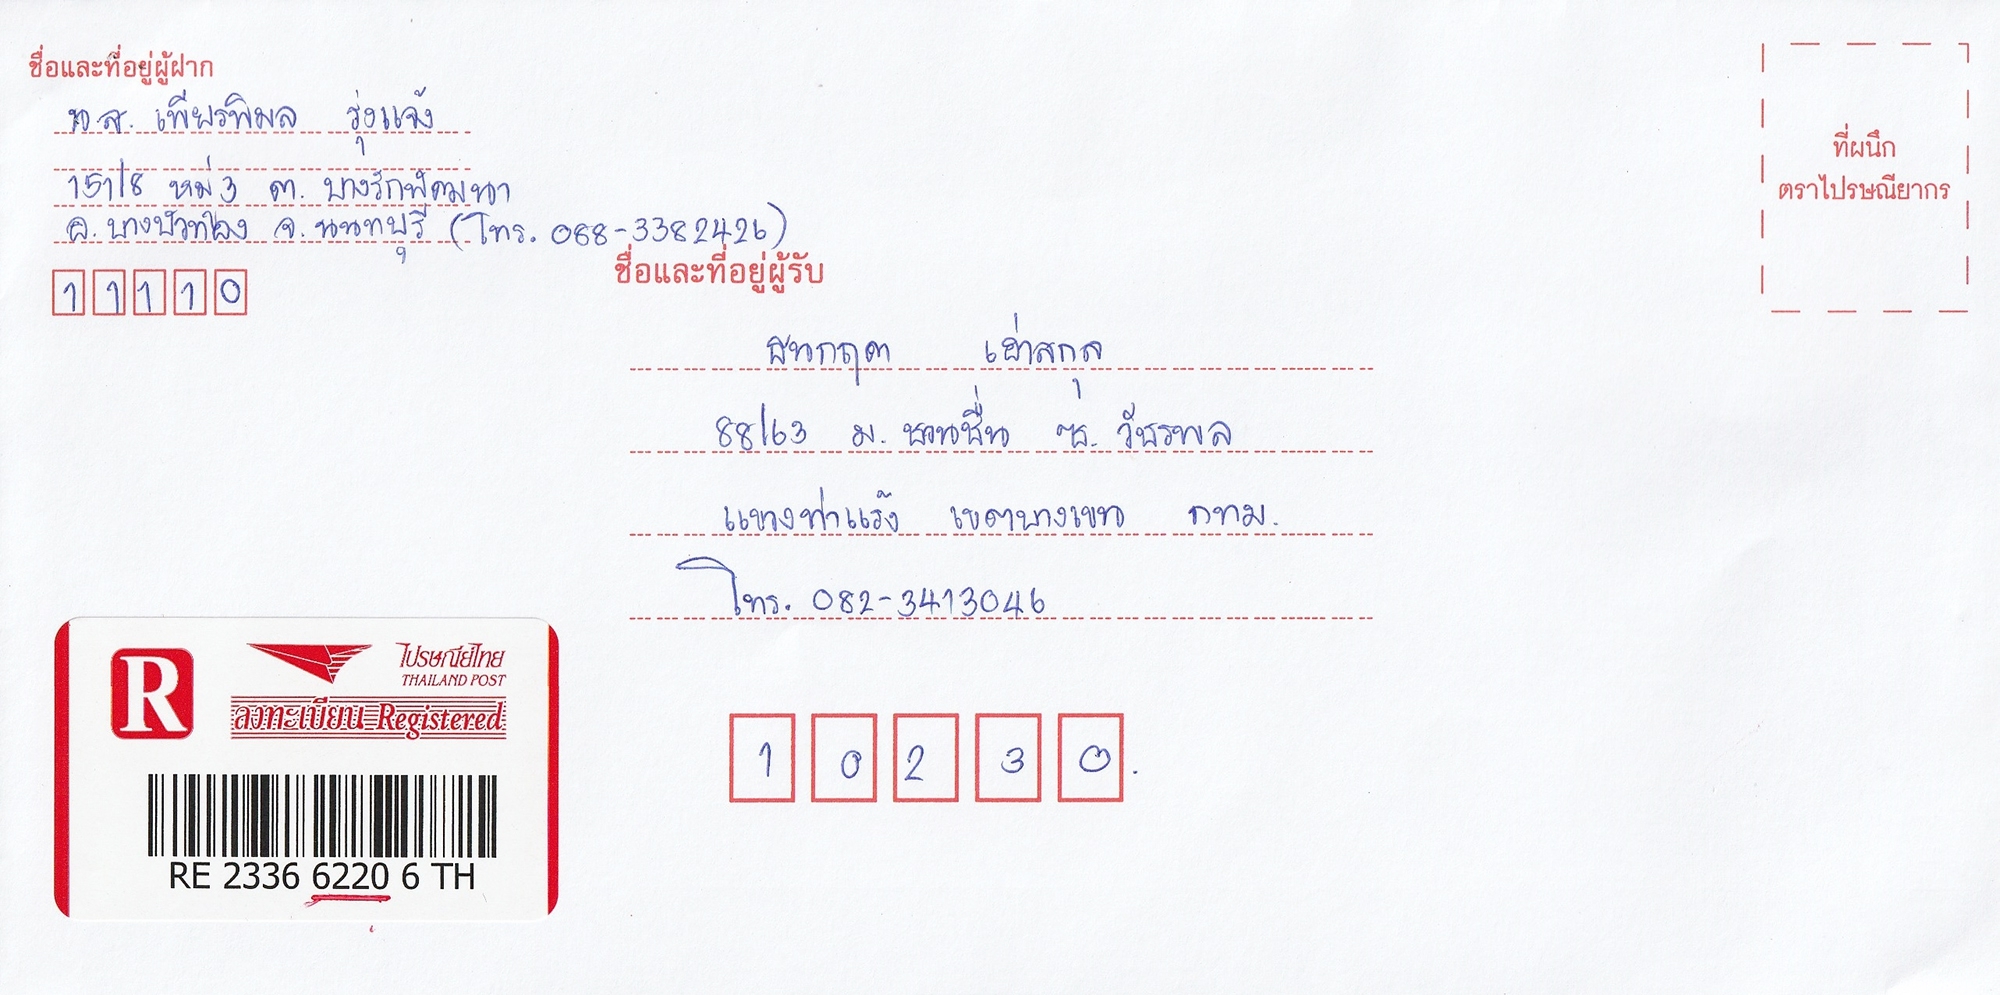 ชื่อและที่อยู่ผู้ฝาก
น.ส. เพียรพิมล รุ่งแจ้ง
151/8 หมู่ 3 ต. บางรักพัฒนา
อ. บางบัวทอง จ. นนทบุรี (โทร. 088-3382426)
11110
ที่ผนึก
ตราไปรษณียากร
ชื่อและที่อยู่ผู้รับ
ธนกฤต เฮ่าสกุล
88/63 ม. ชวนชื่น ซ. วัชรพล
แขวงท่าแร้ง เขตบางเขน กทม.
โทร. 082-3413046
10230.
R ไปรษณีย์ไทย
THAILAND POST
ลงทะเบียน Registered
RE 2336 6220 6 TH